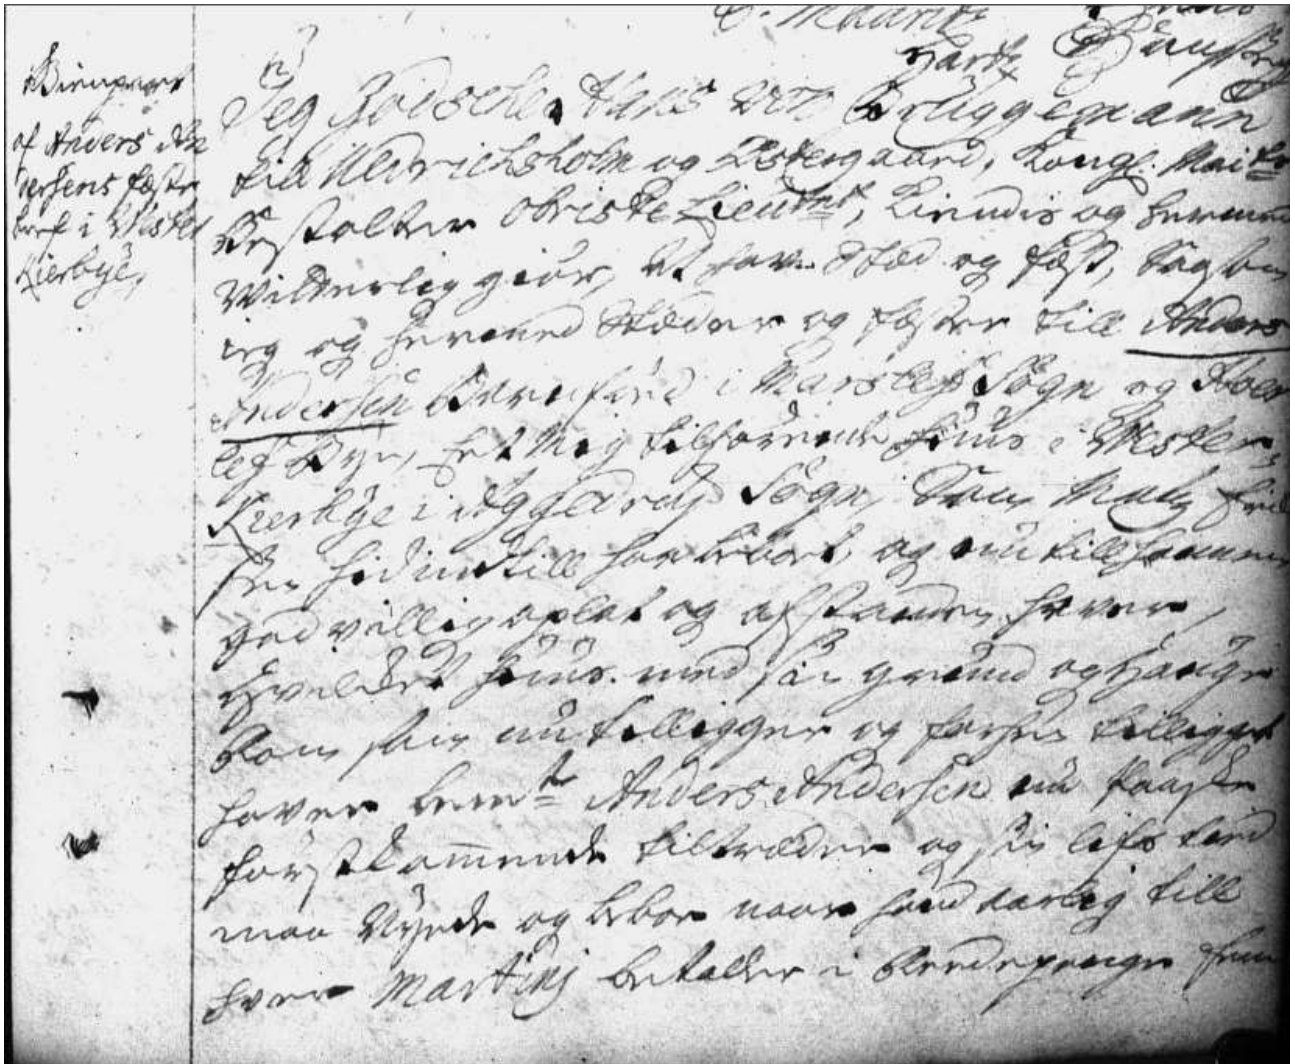 C. Mauritz
Hartz
Gienpart
af Anders An
dersens fæste
bref i Wester
Kierbye,
Jeg Godsche Hans von Brüggemann
till Uldrichsholm og Østergaard, Kongl. Mai:ts
Bestalter Obriste Lieut:nt, Kiendis og hermed
Witterlig giør, At have Sted og fæst, Saasom
ieg og hermed Stæder og fæster till Anders
Andersen Barnføed i Marslef Sogn og
lef Bye, Et Mig tilhørende Huus i Wester
Kierbye i Sogn, Som Matz
sen hidindtill har beboet, og nu till hannem
godvillig oplat og afstanden haver,
hvilket Huus med sin grund og
Som som nu tilligger og forhen tilligget
haver bem:te Anders Andersen nu Paaske
førstkommende tiltræder og sin lifs tiid
maa Nyde og beboe naar hand aarlig till
hver Martinj betaller i Reedepenge